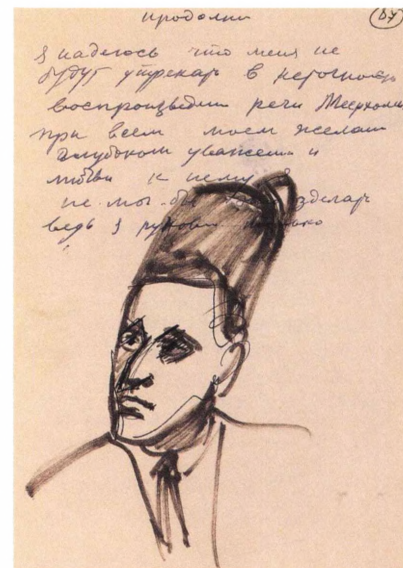 продолжи 87
я надеюсь что меня не
будут упрекать в неточности
воспроизведении речи Меерхольда
при всем моем желании
глубоком уважении и
любви к нему я
не мог бы зделать
ведь я